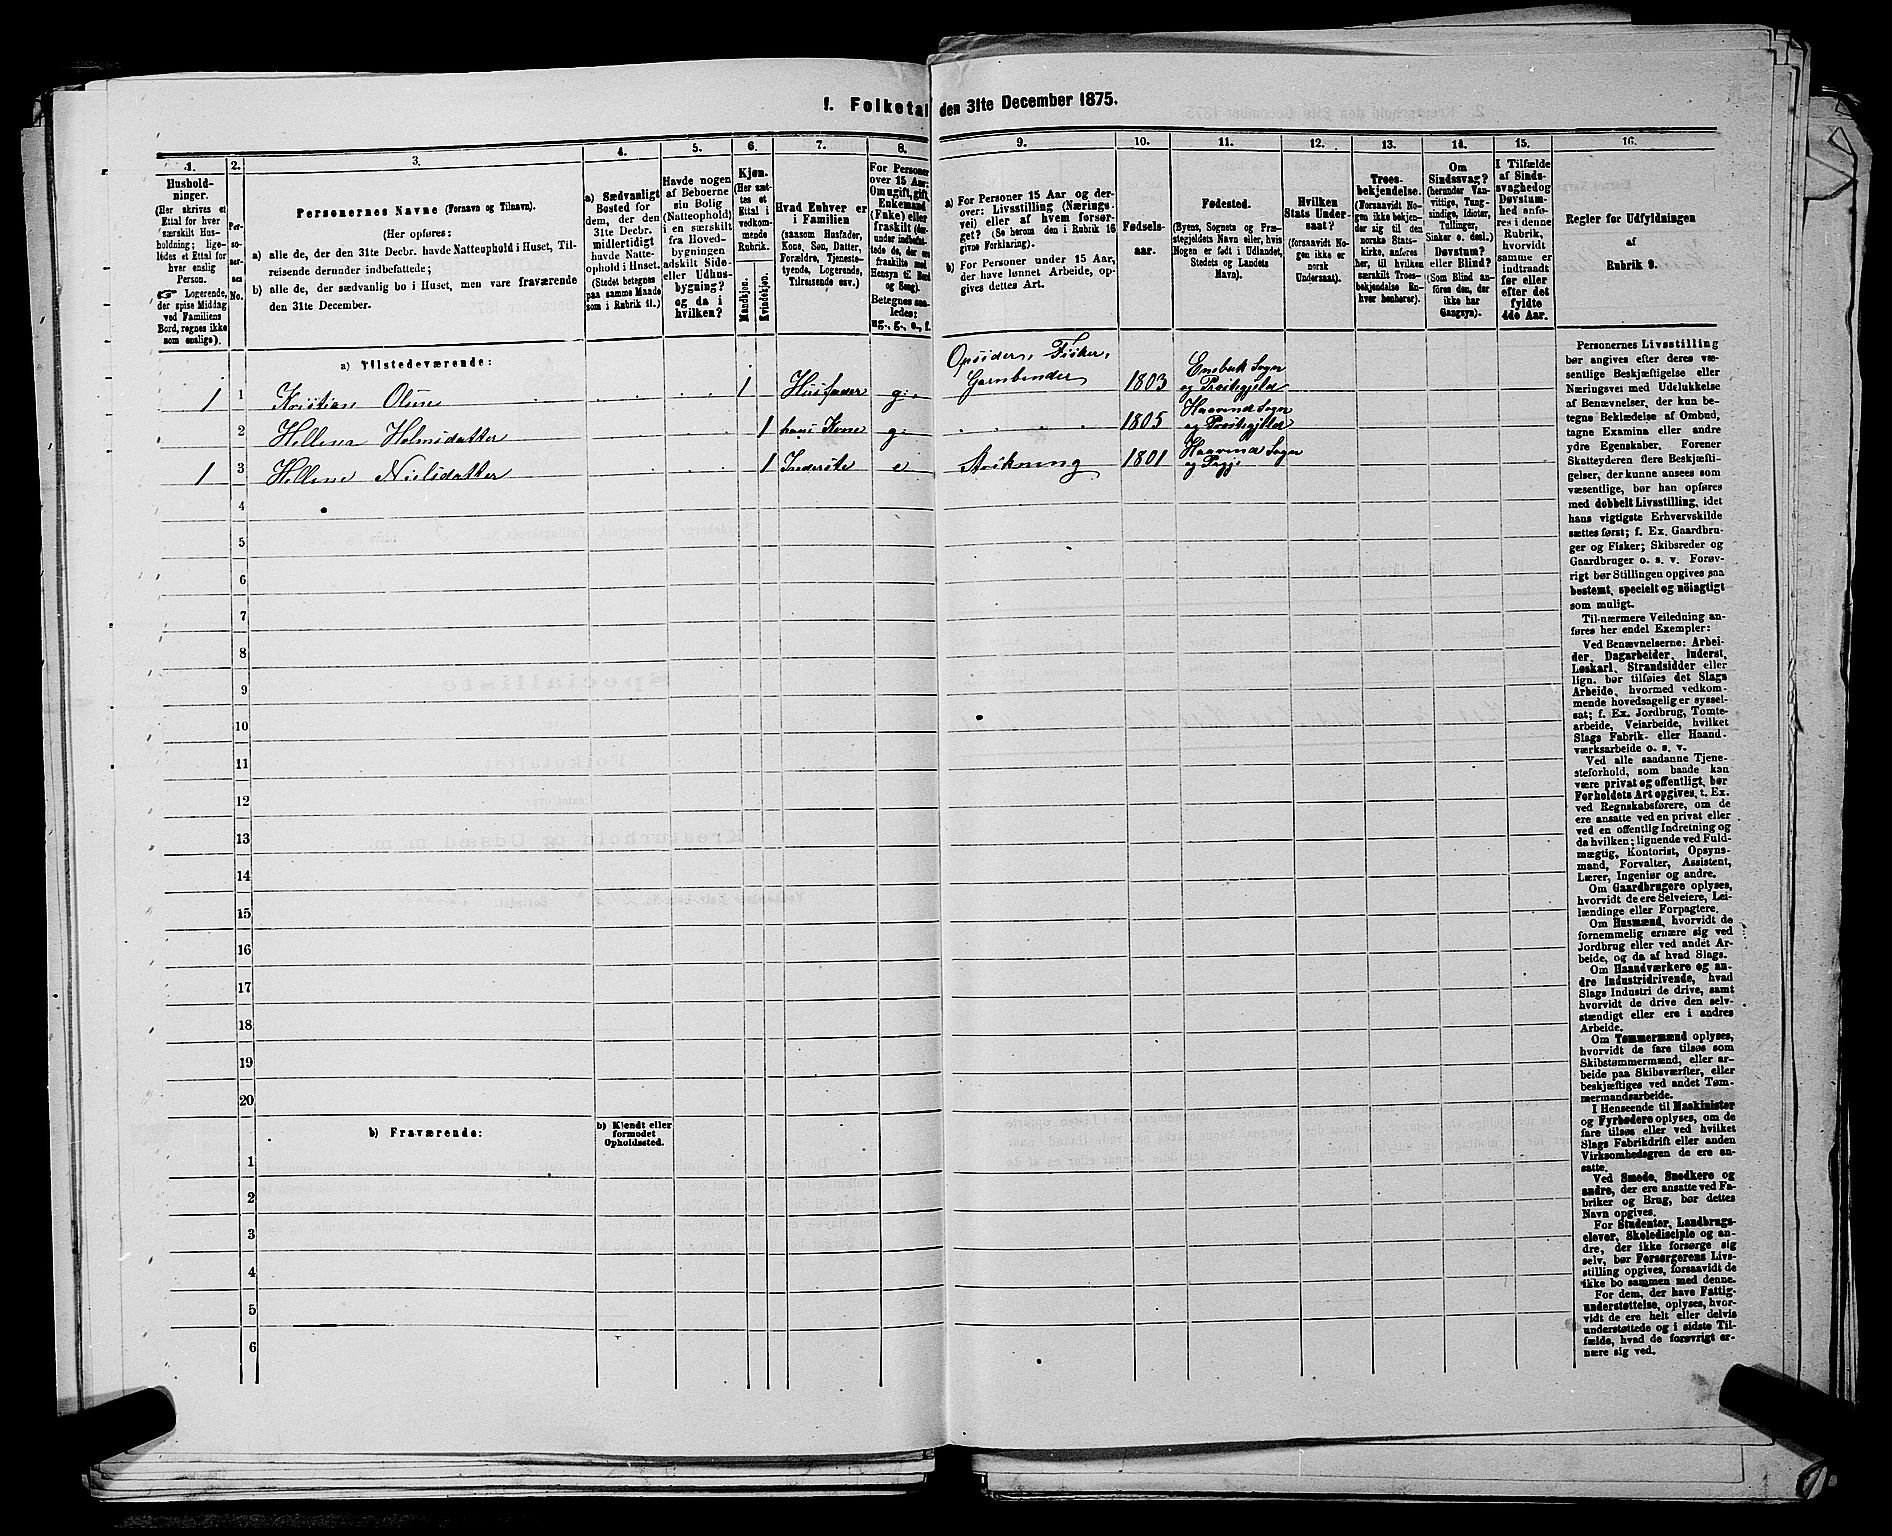 1. Folketal den 31te December 1875.
1.
2.
3.
4.
5.
6.
7.
8.
9.
10.
11.
12.
13.
14.
15.
16.
Hushold-
ninger.
(Her skrives et
Ettal for hver
særskilt Hus-
holdning; lige-
ledes et Ettal for
hver enslig
Person.
☞ Logerende,
der spise Middag
ved Familiens
Bord, regnes ikke
som enslige).
Per-
so-
ner-
nes
No.
Personernes Navne (Fornavn og Tilnavn).
(Her opføres:
a) alle de, der den 31te Decbr. havde Natteophold i Huset, Til-
reisende derunder indbefattede;
b) alle de, der sædvanlig bo i Huset, men vare fraværende
den 31te December.
a) Sædvanligt
Bosted for
dem, der den
31te Decbr.
midlertidigt
havde Natte-
ophold i Huset.
(Stedet betegnes
paa samme Maade
som i Rubrik 11.)
Havde nogen
af Beboerne
sin Bolig
(Natteophold)
i en særskilt
fra Hoved-
bygningen
adskilt Side-
eller Udhus-
bygning?
og da i
hvilken?
Kjøn.
(Her sæt-
tes et
Ettal i
vedkom-
mende
Rubrik.
Mandkjøn.
Kvindekjøn.
Hvad Enhver er
i Familien
(saasom Husfader,
Kone, Søn, Datter,
Forældre, Tjeneste-
tyende, Logerende,
Tilreisende osv.)
For Personer
over 15 Aar:
Om ugift, gift,
Enkemand
(Enke) eller
fraskilt (der-
under indbefat-
tede de, der ere
fraskilte med
Hensyn til Bord
og Seng).
Betegnes saa-
ledes:
ug., g., e., f.
a) For Personer 15 Aar og der-
over: Livsstilling (Nærings-
vei) eller af hvem forsør-
get? (Se herom den i Rubrik 16
givne Forklaring).
b) For Personer under 15 Aar,
der have lønnet Arbeide, op-
gives dettes Art.
Fødsels-
aar.
Fødested.
(Byens, Sognets og Præ-
stegjeldets Navn eller, hvis
Nogen er født i Udlandet,
Stedets og Landets
Navn).
Hvilken
Stats Under-
saat?
(forsaavidt No-
gen ikke er
norsk
Undersaat).
Troes-
bekjendelse.
(Forsaavidt No-
gen ikke bekjen-
der sig til den
norske Stats-
kirke, anføres
her, til hvilken
særskilt Troes-
bekjendelse En-
hver henhører).
Om
Sindssvag?
(herunder Van-
vittige, Tung-
sindige, Idioter,
Tullinger,
Sinker o. desl.)
Døvstum?
eller Blind?
(Som Blind an-
føres den, der
ikke har
Gangsyn).
I Tilfælde
af Sinds-
svaghed og
Døvstum-
hed anfø-
res i denne
Rubrik,
hvorvidt
samme er
indtraadt
før eller
efter det
fyldte
4de Aar.
Regler for Udfyldningen
af
Rubrik 9.
a) Tilstedeværende:
1 1 Kristian Olsen 1 Husfader g. Opsider, Fisker, Garnbinder 1803 Enebak Sogn og Præstegjeld
2 Hellena Holmsdatter 1 hans Kone g. 1805 Haavind Sogn og Præstegjeld
1 3 Hellene Nielsdatter 1 Inderste e Strikning 1801 Haavind Sogn og Prgj:
4
5
6
7
8
9
10
11
12
13
14
15
16
17
18
19
20
b) Fraværende:
b) Kjendt eller
formodet
Opholdssted.
1
2
3
4
5
6
Personernes Livsstilling
bør angives efter deres væ-
sentlige Beskjæftigelse eller
Næringsvei med Udelukkelse
af Benævnelser, der kun be-
tegne Beklædelse af Ombud,
tagne Examina eller andre
ydre Egenskaber. Forener
Skatteyderen flere Beskjæfti-
gelser, der kunne ansees som
væsentlige, bør han opføres
med dobbelt Livsstilling, idet
hans vigtigste Erhvervskilde
sættes først; f. Ex. Gaardbru-
ger og Fisker; Skibsreder og
Gaardbruger o. s. v. Forøv-
rigt bør Stillingen opgives saa
bestemt, specielt og nöiagtigt
som muligt.
Til nærmere Veiledning an-
føres her endel Exempler:
Ved Benævnelserne: Arbei-
der, Dagarbeider, Inderst,
Løskarl, Strandsidder eller
lign. bør tilføies det Slags
Arbeide, hvormed vedkom-
mende hovedsagelig er syssel-
sat; f. Ex. Jordbrug, Tomte-
arbeide, Veiarbeide, hvilket
Slags Fabrik- eller Haand-
værksarbeide o. s. v.
Ved alle saadanne Tjene-
steforhold, som baade kan
være privat og offentligt, bør
Forholdets Art opgives, t. Ex.
ved Regnskabsførere, om de
ere ansatte ved en privat eller
ved en offentlig Indretning og
da hvilken; lignende ved Fuld-
mægtig, Kontorist, Opsyns-
mand, Forvalter, Assistent,
Lærer, Ingeniør og andre.
Om Gaardbrugere oplyses,
hvorvidt de ere Selveiere, Lei-
lændinge eller Forpagtere.
Om Husmænd, hvorvidt de
fornemmelig ernære sig ved
Jordbrug eller ved andet Ar-
beide, og da af hvad Slags.
Om Haandværkere og an-
dre Industridrivende, hvad
Slags Industri de drive, samt
hvorvidt de drive den selv-
stændigt eller ere i andres
Arbeide.
Om Tømmermænd oplyses,
hvorvidt de fare tilsøs som
Skibstømmermænd, eller ar-
beide paa Skibsværfter, eller
beskjæftiges ved andet Tøm-
mermandsarbeide.
I Henseende til Maskinister
og Fyrbødere oplyses, om de
fare tilsøs eller ved hvilket
Slags Fabrikdrift eller anden
Virksomhedsgren de ere an-
satte.
Ved Smede, Snedkere og
andre, der ere ansatte ved Fa-
briker og Brug, bør dettes
Navn opgives.
For Studenter, Landbrugs-
elever, Skoledisciple og an-
dre, der ikke forsørge sig
selv, bør Forsørgerens Livs-
stilling opgives, forsaavidt de
ikke bo sammen med denne.
For dem, der have Fattig-
understøttelse, oplyses, hvor-
vidt de ere helt eller delvis
understøttede og i sidste Til-
fælde, hvad de forøvrigt er-
nære sig ved.